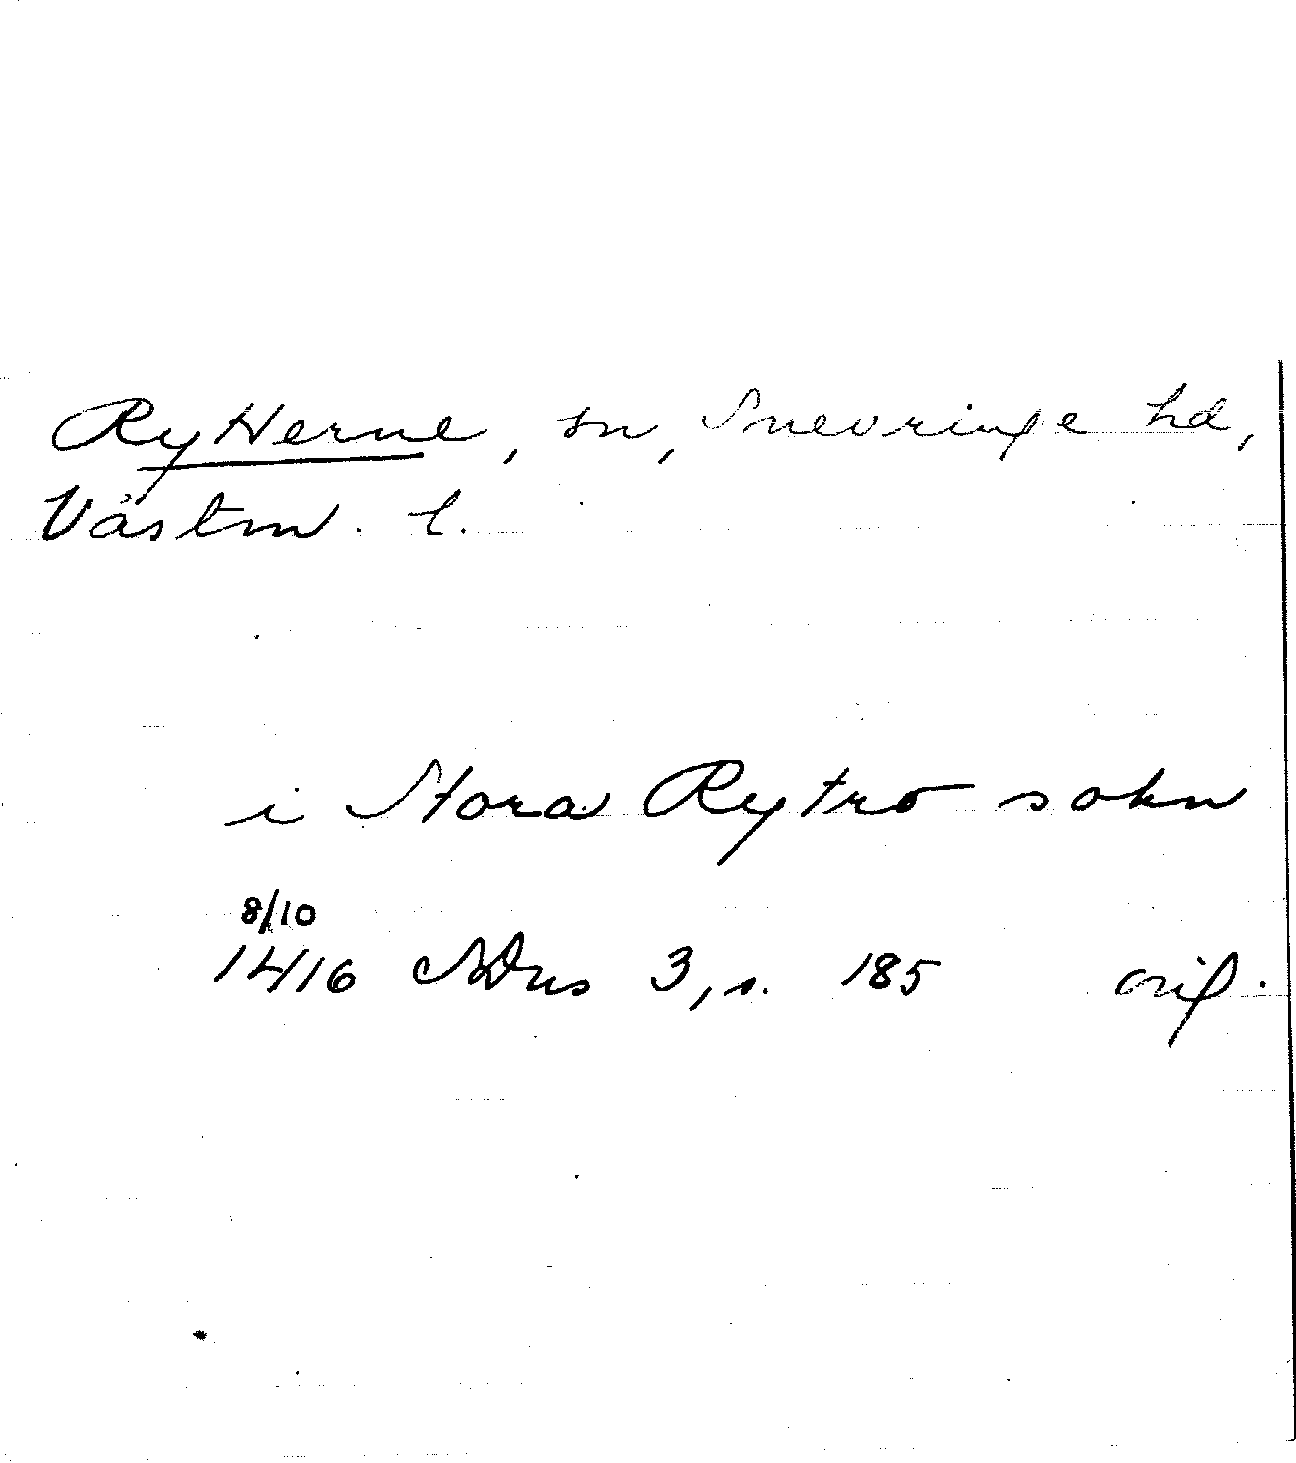 Ryttterne, sn, Snevringe hd,
Västm. l.
i Stora Rytro sokn
8/10
1416 SDns 3, s. 185 orig.